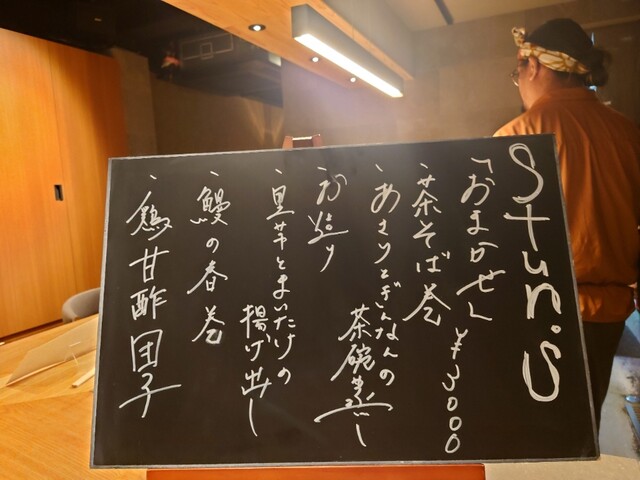 Stun.S
「おまかせ」 ¥3000
・茶そば巻
・あさりとぎんなんの
茶碗蒸し
・お造り
・里芋とまいたけの
揚げ出し
・鰻の春巻
・鶏甘酢団子